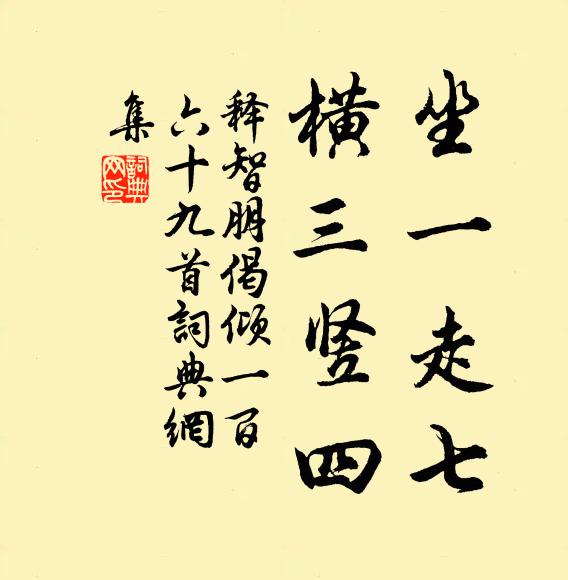 坐一走七
橫三竖四
释智朋偈倾一百
六十九首詞典網
集
詞典網印